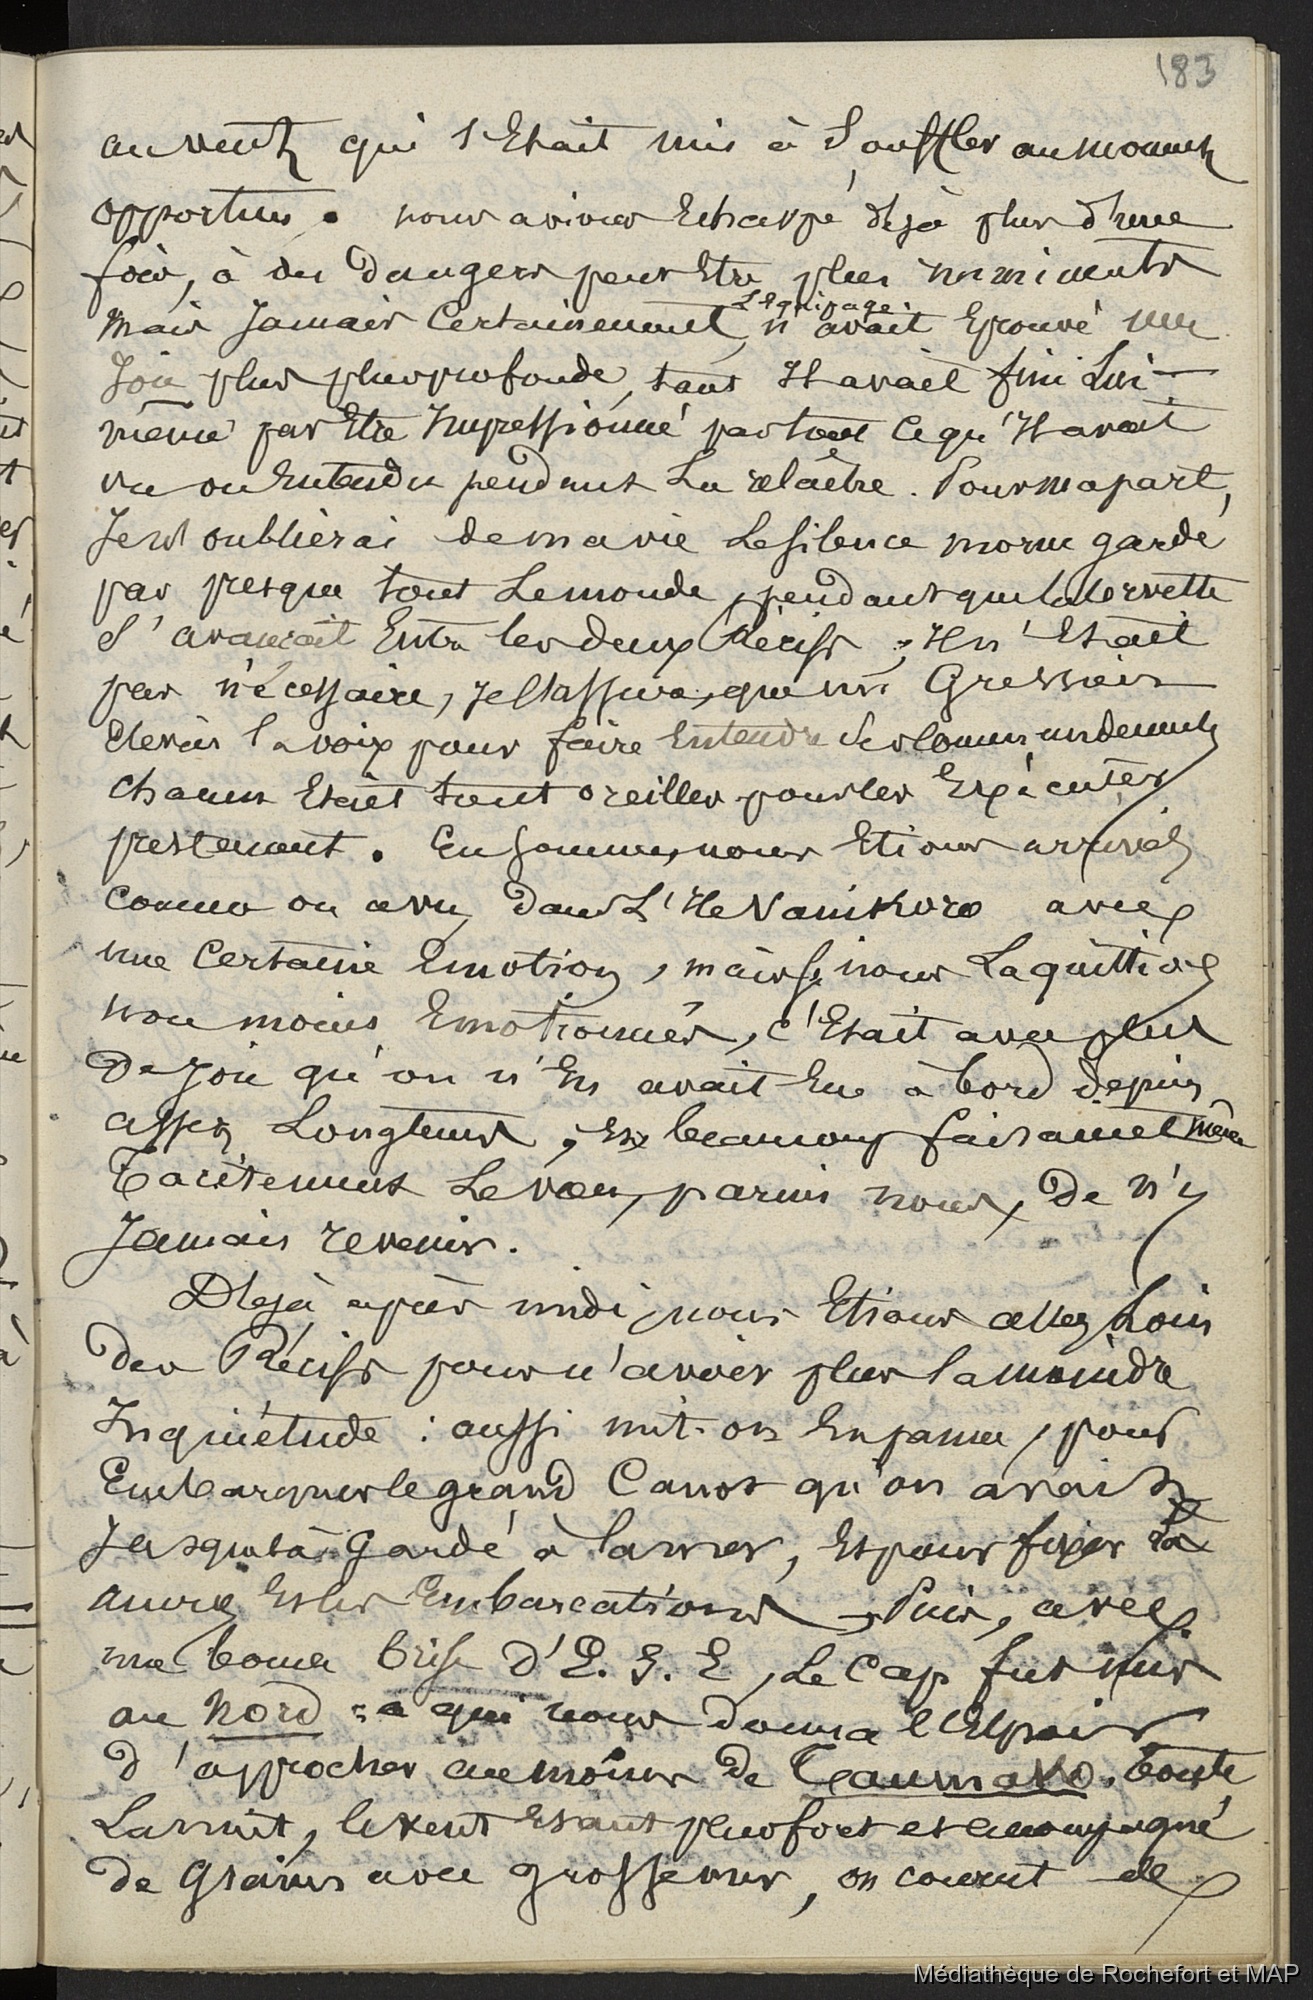 183
au vent qui s'Etait mis à Souffler au moment
opportun. nous avions Echappé déjà plus d'une
fois, à des Dangers peut Etre plus imminents
mais Jamais Certainement, L'Equipage n'avait Eprouvé une
Joie plus plus profonde, tant Il avait fini Lui-
même par Etre Impressionné par tout ce qu'Il avait
vu ou Entendu pendant La relâche. Pour ma part,
Je n'oublierai de ma vie Le silence morne gardé
par presque tout Le monde, pendant que la Corvette
S'avançait Entre les deux Récifs ; Il n'Etait
pas nécessaire, Je l'assure, que mr Gressien
élevât la voix pour faire Entendre Ses Commandements
chacun Etait tout oreilles pour les Exécuter
prestement. En somme, nous Etions arrivés
comme on a vu, dans L'Ile Vanikoro avec
une Certaine Emotion, mais si nous La quittions
non moins Emotionnés, c'Etait avec plus
De Joie qu'on n'En avait Eue à bord depuis
assez Longtems ; Et beaucoup faisaient même
Tacitement Le vœu, parmi nous, De n'y
Jamais revenir.
Déjà après midi, nous Etions assez Loin
Des Récifs pour n'avoir plus la moindre
Inquiétude : aussi mit-on En panne, pour
Embarquer le grand Canot qu'on avait
Jusques là gardé à la mer, Et pour fixer La
ancres Et les Embarcations. Puis, avec
une bonne brise d'E. S. E, Le Cap fut mis
au nord : ce qui nous donna l'Espoir
d'approcher au moins de Taumako. toute
La nuit, le vent Etant plus fort et accompagné
De Grains avec grosse mer, on courut de
Médiathèque de Rochefort et MAP